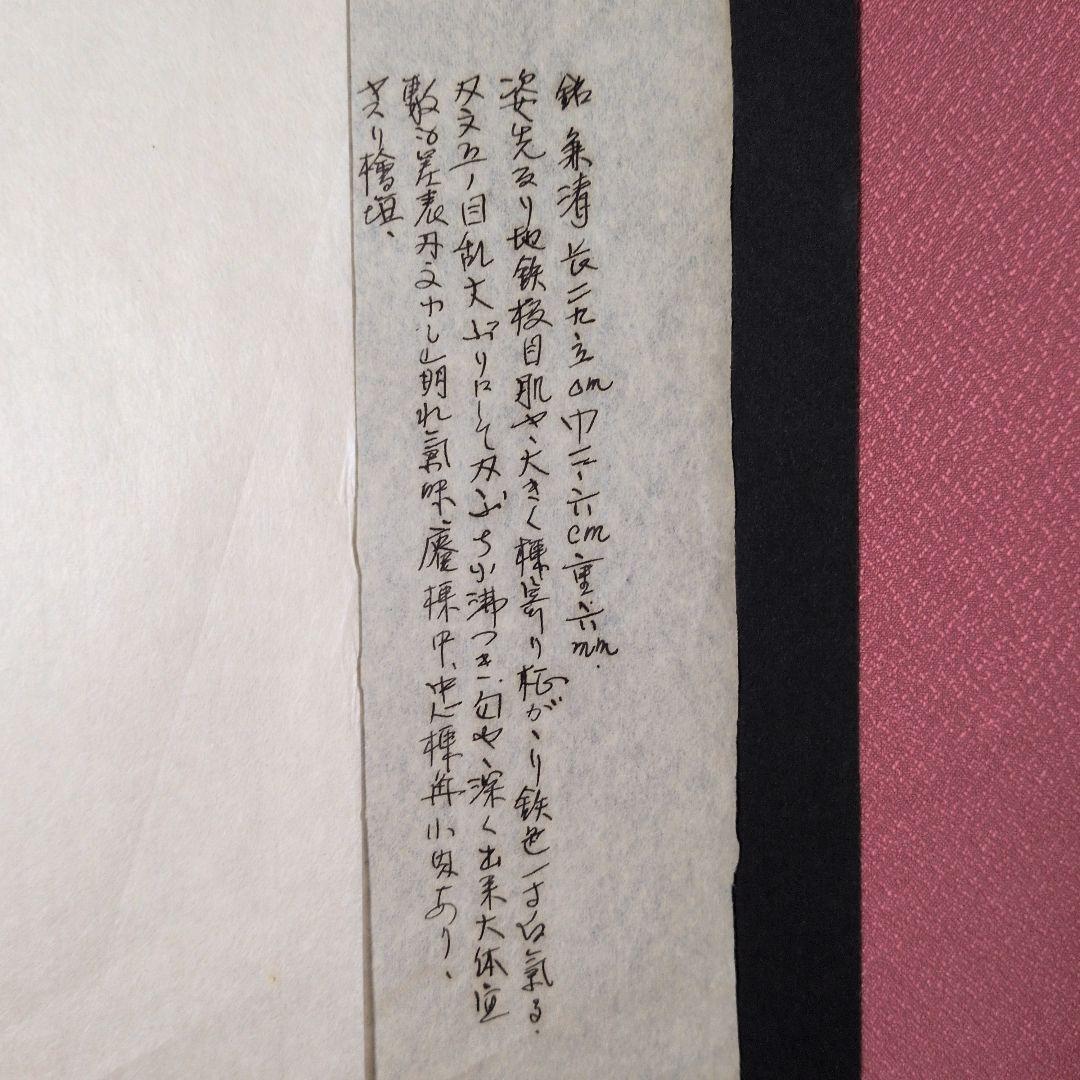 銘 兼清 長二九、五cm 巾二、六cm 重六mm.
姿先反り地鉄板目肌や、大きく棟寄り柾がゝり鉄色一寸白氣る.
刃文五ノ目乱大ぶりにして刃ぶち小沸つき、匂やゝ深く出来大体宜
敷 差表刃文中し 崩れ氣味、庵棟中、中心棟 小肉あり、
ヤスリ檜垣、